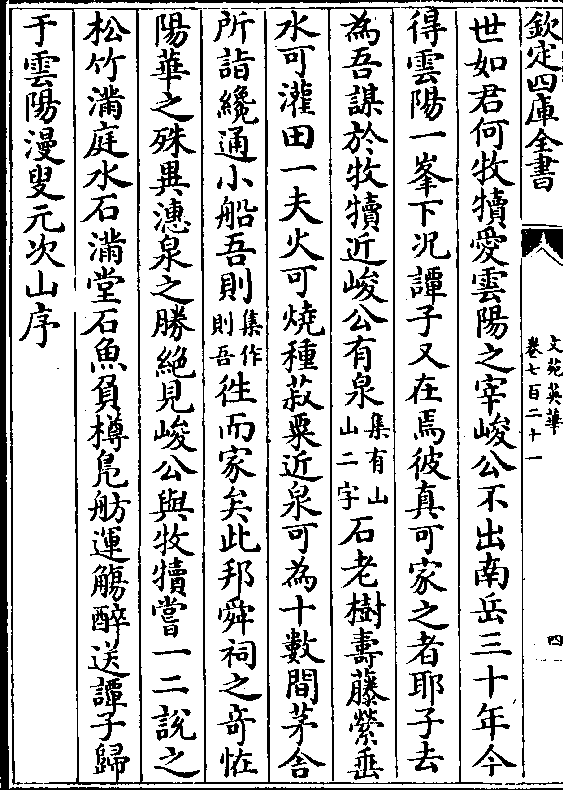 欽定四庫全書
文苑英華
卷七百二十一
四
世如君何牧犢愛雲陽之宰峻公不出南岳三十年今
得雲陽一峯下况譚子又在焉彼真可家之者耶子去
為吾謀於牧犢近峻公有泉集有山山二字石老樹壽藤縈垂
水可灌田一夫火可燒種菽粟近泉可為十數間茅舍
所詣纔通小船吾則集作則吾徃而家矣此邦舜祠之奇怪
陽華之殊異㵽泉之勝絶見峻公與牧犢嘗一二說之
松竹滿庭水石滿堂石魚負樽鳬舫運觴醉送譚子歸
于雲陽漫叟元次山序